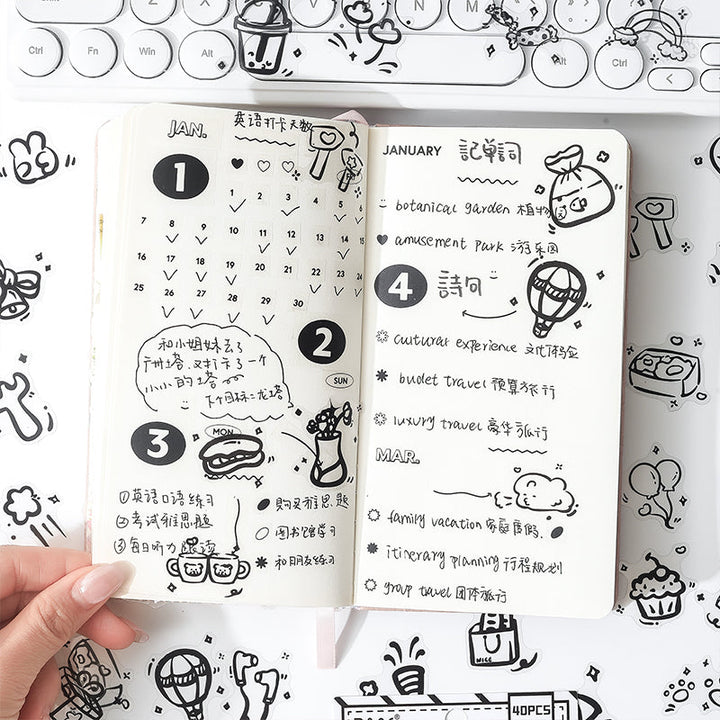 Ctrl
Fn
Win
Alt
JAN.
V
N
M
Alt
Ctrl
JAN.
英语打卡天数
1
1 2 3 4 5 6
7 8 9 10 11 12 13 14 15
16 17 18 19 20 21 22 23 24
25 26 27 28 29 30
和小姐妹去了
广州塔.又打卡了一个
小小的塔
下个目标:龙塔
2
SUN
3
MON
①英语口语练习
②考试雅思题
③每日听力 跟读
购买雅思题
图书馆学习
和朋友练习
JANUARY 記單詞
botanical garden 植物园
amusement park 游乐园
4 詩句
cultural experience 文化体验
budet travel 预算旅行
luxury travel 豪华旅行
MAR.
family vacation 家庭度假.
itinerary planning 行程规划
group travel 团体旅行
NICE
40PCS